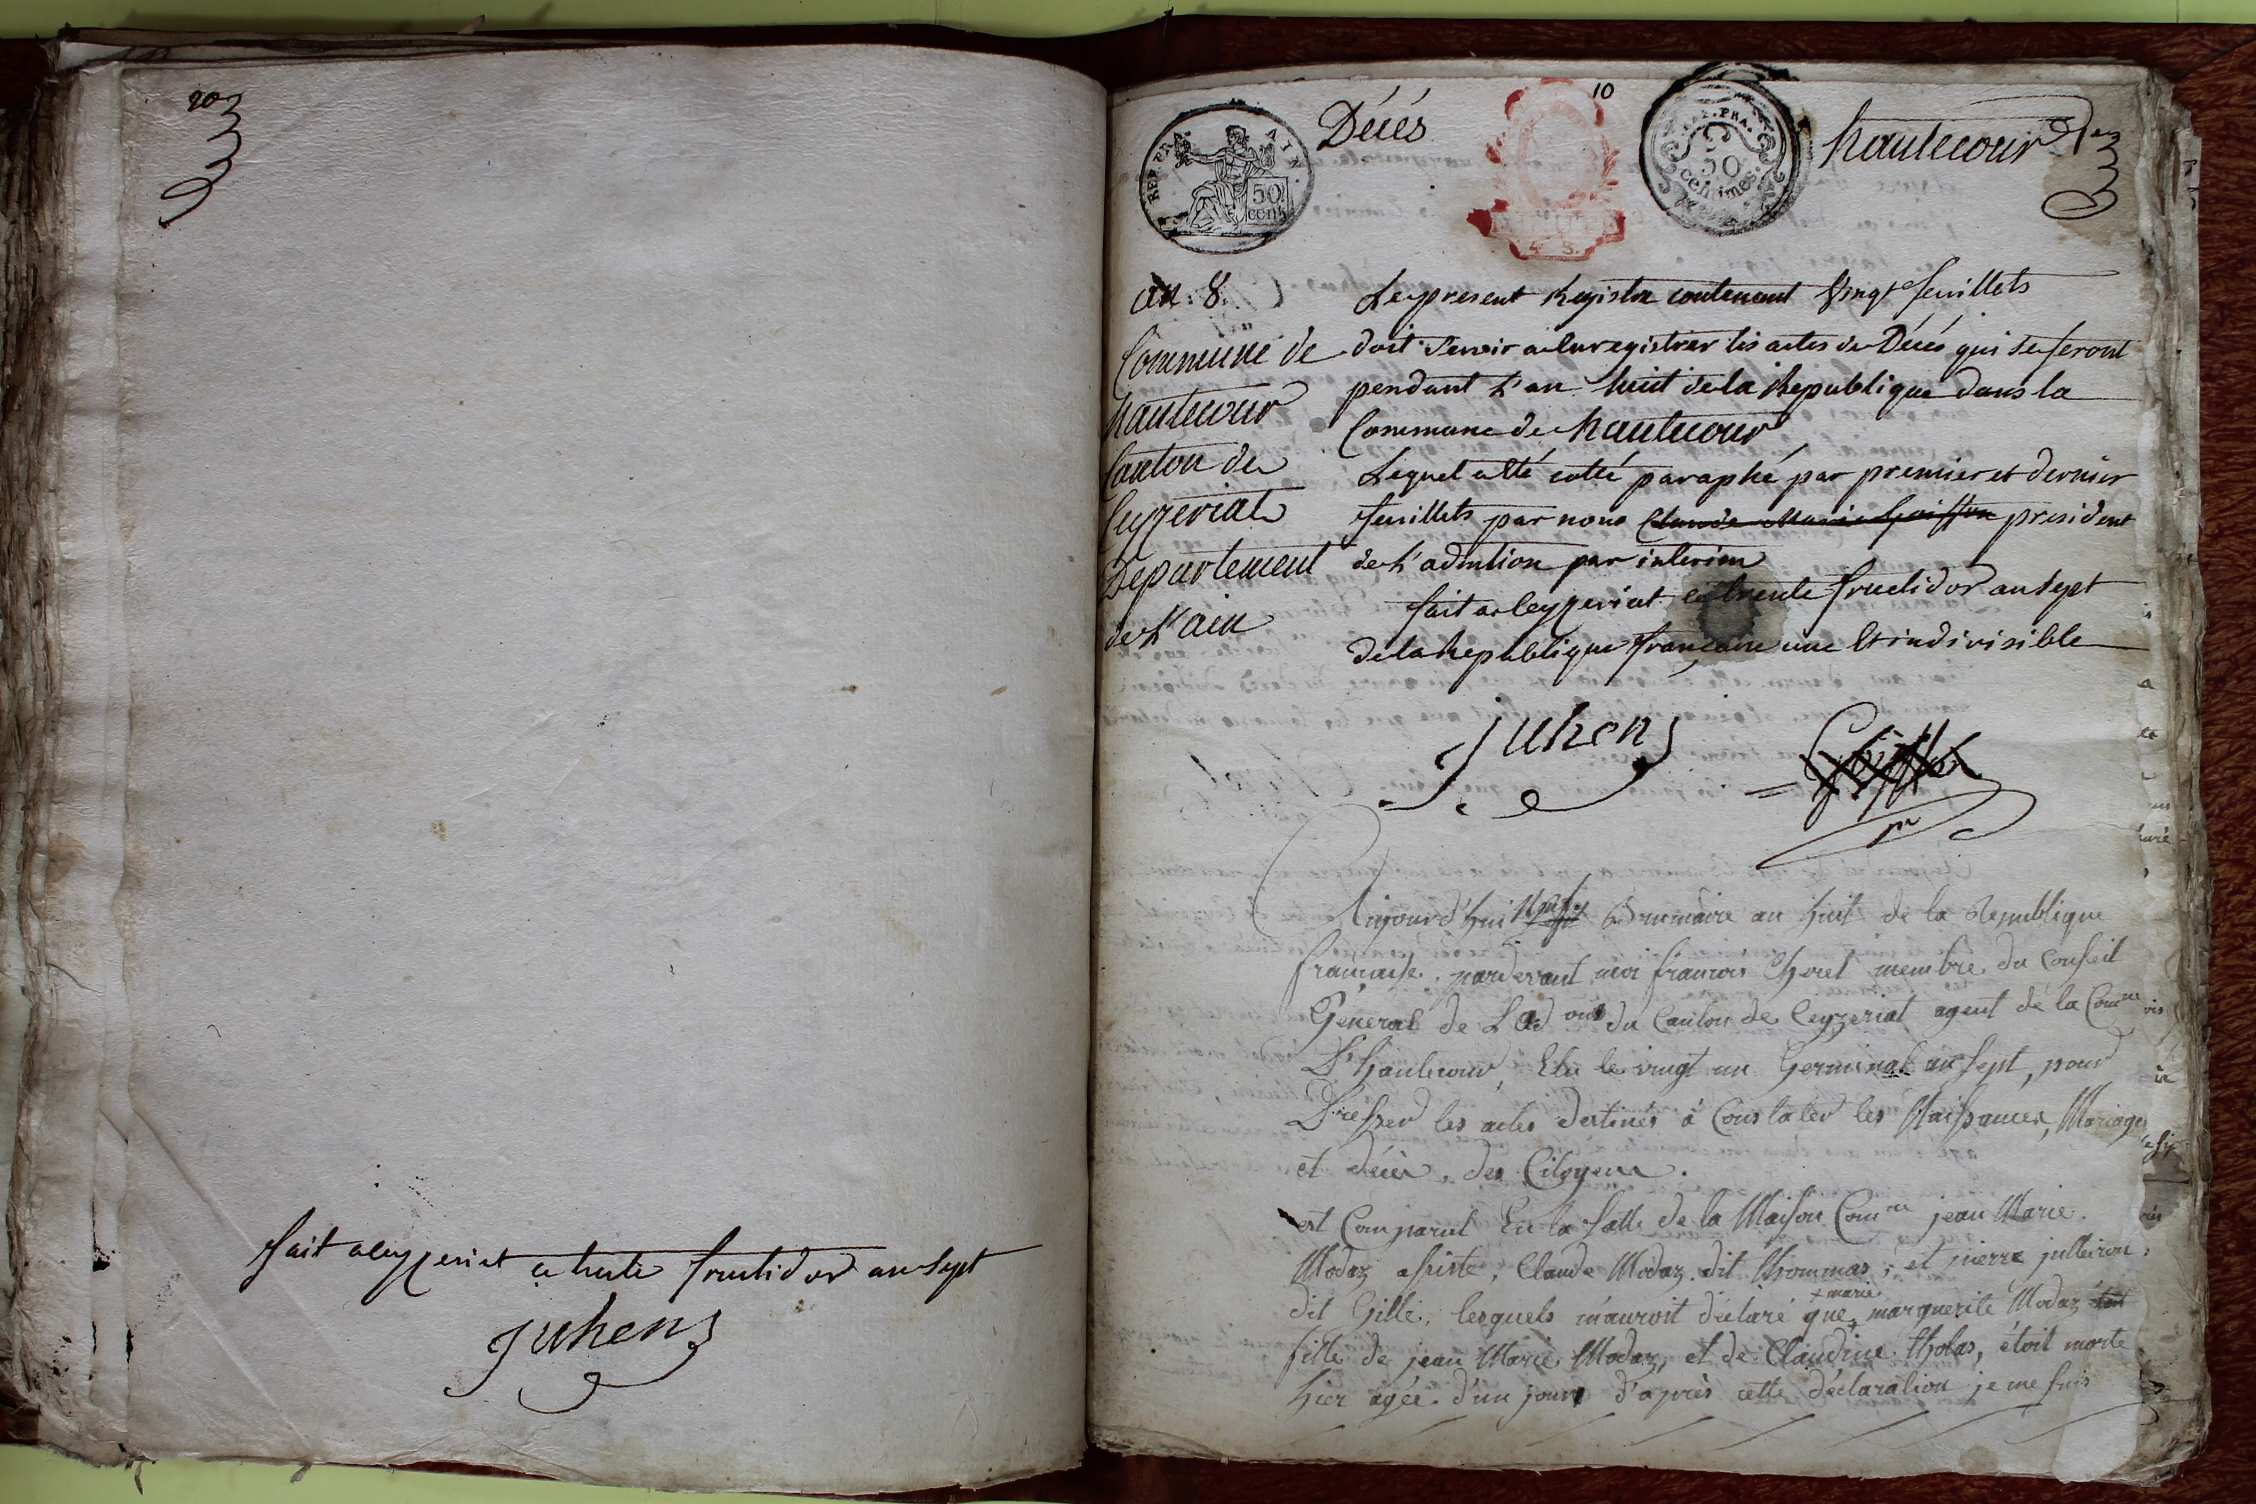 20
fait a ceyzeriat ce trente fructidor an sept
Juhen
REP. FRA. AIN.
50
cent.
Décés
10
4 S.
REP. FRA.
50
centimes.
hautecour
an 8.
Commune de
hautecour
Canton de
Ceyzeriat
Departement
de L'ain
Le present Registre contenant Vingt feuillets
doit servir a Enregistrer les actes de Décés qui se feront
pendant L'an huit de la Republique dans la
Commune de hautecour
Lequel a été cotté paraphé par premier et dernier
feuillets par nous Claude Marie Goiffon president
de L'admtion par interim
fait a Ceyzeriat ce trente fructidor an sept
de la Republique française une Et indivisible
Juhen
Goiffon
Aujourd'hui Brumaire an huit de la Republique
francaise, pardevant moi francois Choret membre du Conseil
General de L'ad on du Canton de Ceyzeriat agent de la Comne
D'hautecour, Elu le vingt un Germinal an Sept, pour
Dresser les actes destinés à Constater les Naissances, Mariages
et décès, des Citoyens.
est Comparut En la Salle de la Maison Comne jean Marie
Modaz assisté, Claude Modaz dit thommas, et pierre julleron,
dit Gille, lesquels m'auroit déclaré que marguerite Modaz
+ marie
fille de jean Marie Modaz, et de Claudine tholas, étoit morte
hier agée d'un jour d'après cette déclaration je me suis